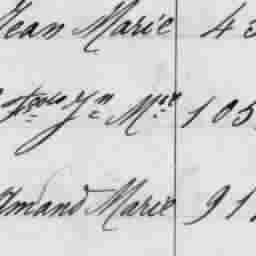 Jean Marie 43
Jn Mie 105
Amand Marie 91